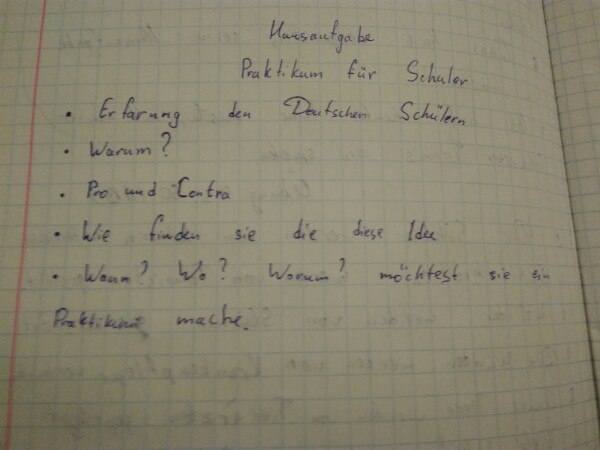 Hausaufgabe
Praktikum für Schüler
• Erfarung den Deutschen Schülern
• Warum?
• Pro und Contra
• Wie finden sie die diese Idee
• Wann? Wo? Warum? möchtest sie ein
Praktikum mache.